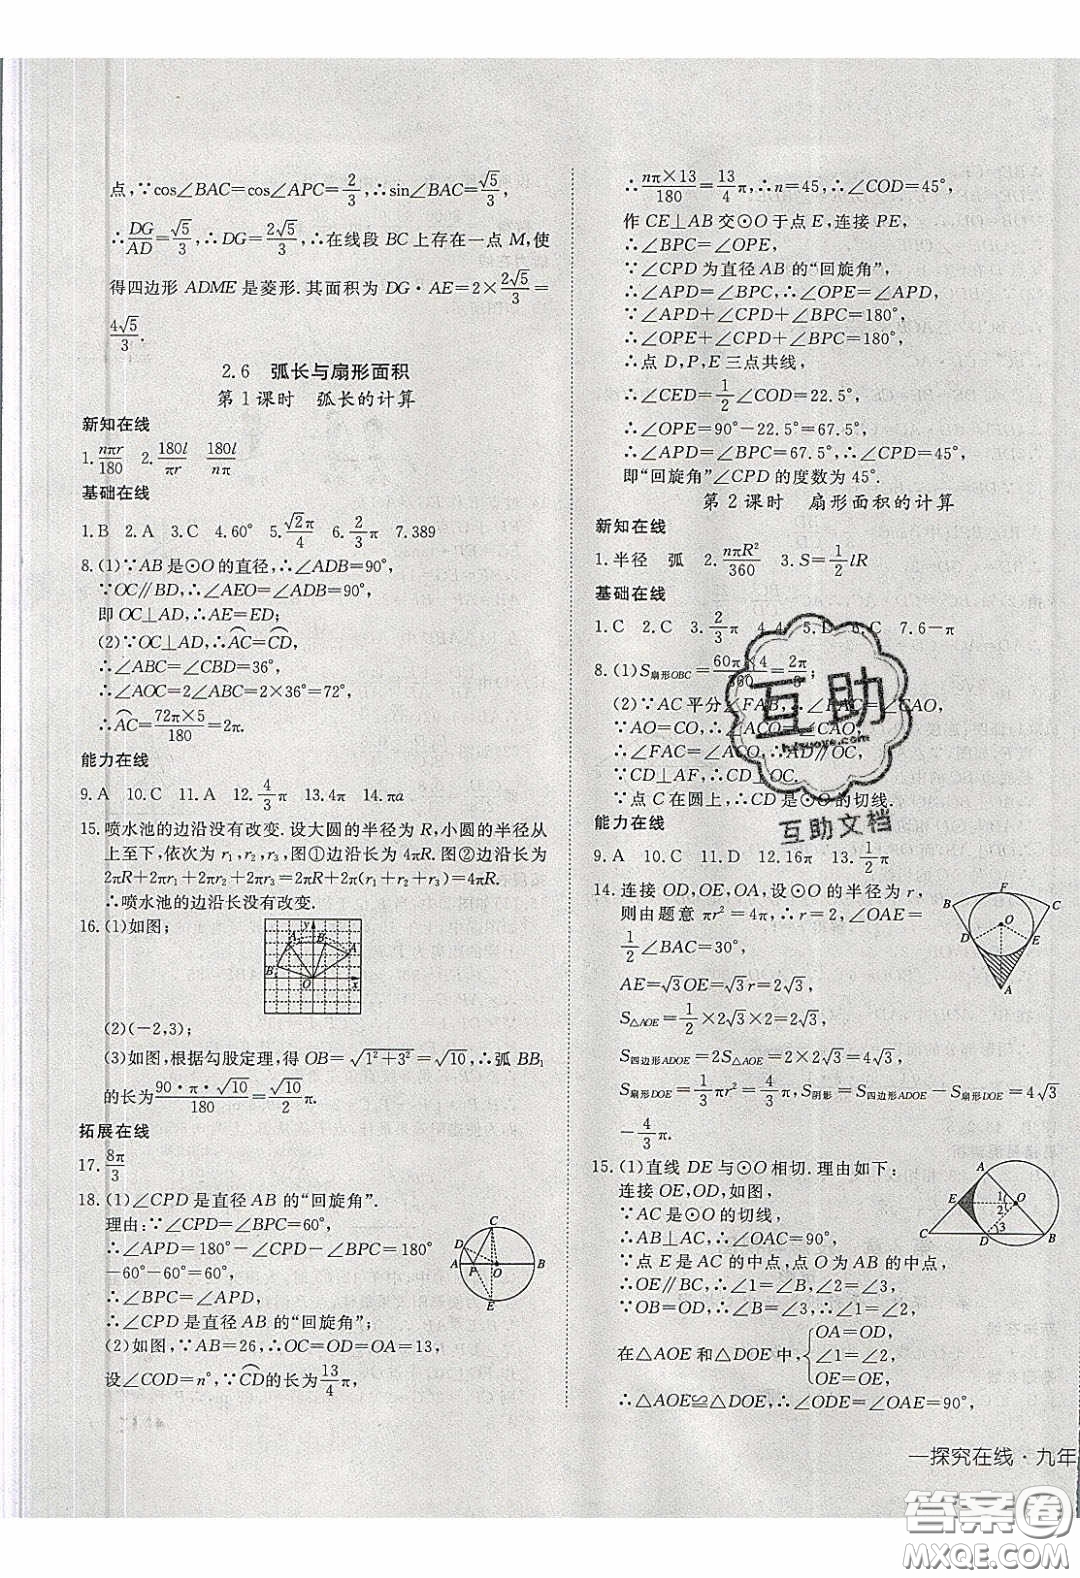 点,∵cos∠BAC=cos∠APC=2/3,∴sin∠BAC=√5/3,
∴DG/AD=√5/3,∴DG=2√5/3,∴在线段 BC 上存在一点 M,使
得四边形 ADME 是菱形.其面积为 DG·AE=2×2√5/3=
4√5/3.
2.6 弧长与扇形面积
第1课时 弧长的计算
新知在线
1.nπr/180 2.180l/πr 180l/nπ
基础在线
1.B 2.A 3.C 4.60° 5.√2π/4 6.2/3π 7.389
8.(1)∵AB是⊙O的直径,∴∠ADB=90°,
∵OC∥BD,∴∠AEO=∠ADB=90°,
即 OC⊥AD,∴AE=ED;
(2)∵OC⊥AD,∴⌒AC=⌒CD,
∴∠ABC=∠CBD=36°,
∴∠AOC=2∠ABC=2×36°=72°,
∴⌒AC=72π×5/180=2π.
能力在线
9.A 10.C 11.A 12.4/3π 13.4π 14.πa
15.喷水池的边沿没有改变.设大圆的半径为R,小圆的半径从
上至下,依次为r₁,r₂,r₃,图①边沿长为4πR.图②边沿长为
2πR+2πr₁+2πr₂+2πr₃=2πR+2π(r₁+r₂+r₃)=4πR.
∴喷水池的边沿长没有改变.
16.(1)如图;
y
A₁
B
A
B₁
O
x
(2)(-2,3);
(3)如图,根据勾股定理,得 OB=√1²+3²=√10,∴弧 BB₁
的长为90·π·√10/180=√10/2π.
拓展在线
17.8π/3
18.(1)∠CPD是直径AB的“回旋角”.
理由:∵∠CPD=∠BPC=60°,
∴∠APD=180°-∠CPD-∠BPC=180°
-60°-60°=60°,
∴∠BPC=∠APD,
∴∠CPD是直径AB的“回旋角”;
(2)如图,∵AB=26,∴OC=OD=OA=13,
设∠COD=n°,∵⌒CD的长为13/4π,
C
D
A P O B
E
∴nπ×13/180=13/4π,∴n=45,∴∠COD=45°,
作CE⊥AB交⊙O于点E,连接PE,
∴∠BPC=∠OPE,
∵∠CPD为直径AB的“回旋角”,
∴∠APD=∠BPC,∴∠OPE=∠APD,
∵∠APD+∠CPD+∠BPC=180°,
∴∠OPE+∠CPD+∠BPC=180°,
∴点D,P,E三点共线,
∴∠CED=1/2∠COD=22.5°,
∴∠OPE=90°-22.5°=67.5°,
∴∠APD=∠BPC=67.5°,∴∠CPD=45°,
即“回旋角”∠CPD的度数为45°.
第2课时 扇形面积的计算
新知在线
1.半径 弧 2.nπR²/360 3.S=1/2lR
基础在线
1.C 2.C 3.2/3π 4.4 5.D 6.C 7.6-π
8.(1)S扇形OBC=60π×4/360=2π/3;
(2)∵AC平分∠FAB,∴∠FAC=∠CAO,
∵AO=CO,∴∠ACO=∠CAO,
∴∠FAC=∠ACO,∴AD∥OC,
∵CD⊥AF,∴CD⊥OC.
∵点C在圆上,∴CD是⊙O的切线.
能力在线
9.A 10.C 11.D 12.16π 13.1/2π
14.连接OD,OE,OA,设⊙O的半径为r,
则由题意πr²=4π,∴r=2,∠OAE=
1/2∠BAC=30°,
AE=√3OE=√3r=2√3,
S△AOE=1/2×2√3×2=2√3,
S四边形ADOE=2S△AOE=2×2√3=4√3,
S扇形DOE=1/3πr²=4/3π,S阴影=S四边形ADOE-S扇形DOE=4√3
-4/3π.
F
B C
O
D E
A
15.(1)直线DE与⊙O相切.理由如下:
连接OE,OD,如图,
∵AC是⊙O的切线,
∴AB⊥AC,∴∠OAC=90°,
∵点E是AC的中点,点O为AB的中点,
∴OE∥BC,∴∠1=∠B,∠2=∠3,
∵OB=OD,∴∠B=∠3,∴∠1=∠2,
在△AOE和△DOE中,{OA=OD,
∠1=∠2,
OE=OE,
∴△AOE≌△DOE,∴∠ODE=∠OAE=90°,
A
E 1 O
2
3
C D B
互助
互助文档
—探究在线·九年
答案圈
MXQE.COM